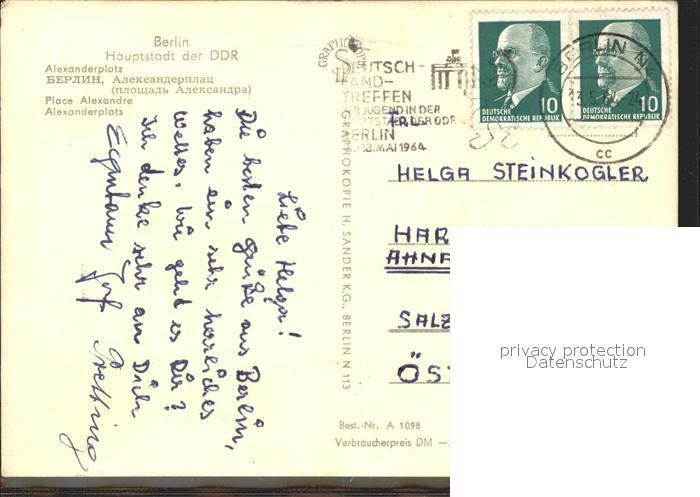 Berlin
Hauptstadt der DDR
Alexanderplatz
БЕРЛИН, Александерплац
(площадь Александра)
Place Alexandre
Alexanderplats
DEUTSCH-
LAND-
TREFFEN
DER JUGEND IN DER
HAUPTSTADT DER DDR
BERLIN
-18. MAI 1964
10
DEUTSCHE
DEMOKRATISCHE REPUBLIK
10
DEUTSCHE
DEMOKRATISCHE REPUBLIK
BERLIN N
cc
FRL.
HELGA STEINKOGLER
HAR
AHNA
SALZ
ÖST
Liebe Helga!
Die besten Grüße aus Berlin,
haben ein sehr herrliches
Wetter. Wie geht es Dir?
Ich denke sehr an Dich
GRAPHOKOPIE H. SANDER K.G., BERLIN N 113
Best.-Nr. A 1098
Verbraucherpreis DM -,
privacy protection
Datenschutz